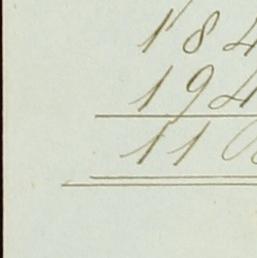 184
194
110